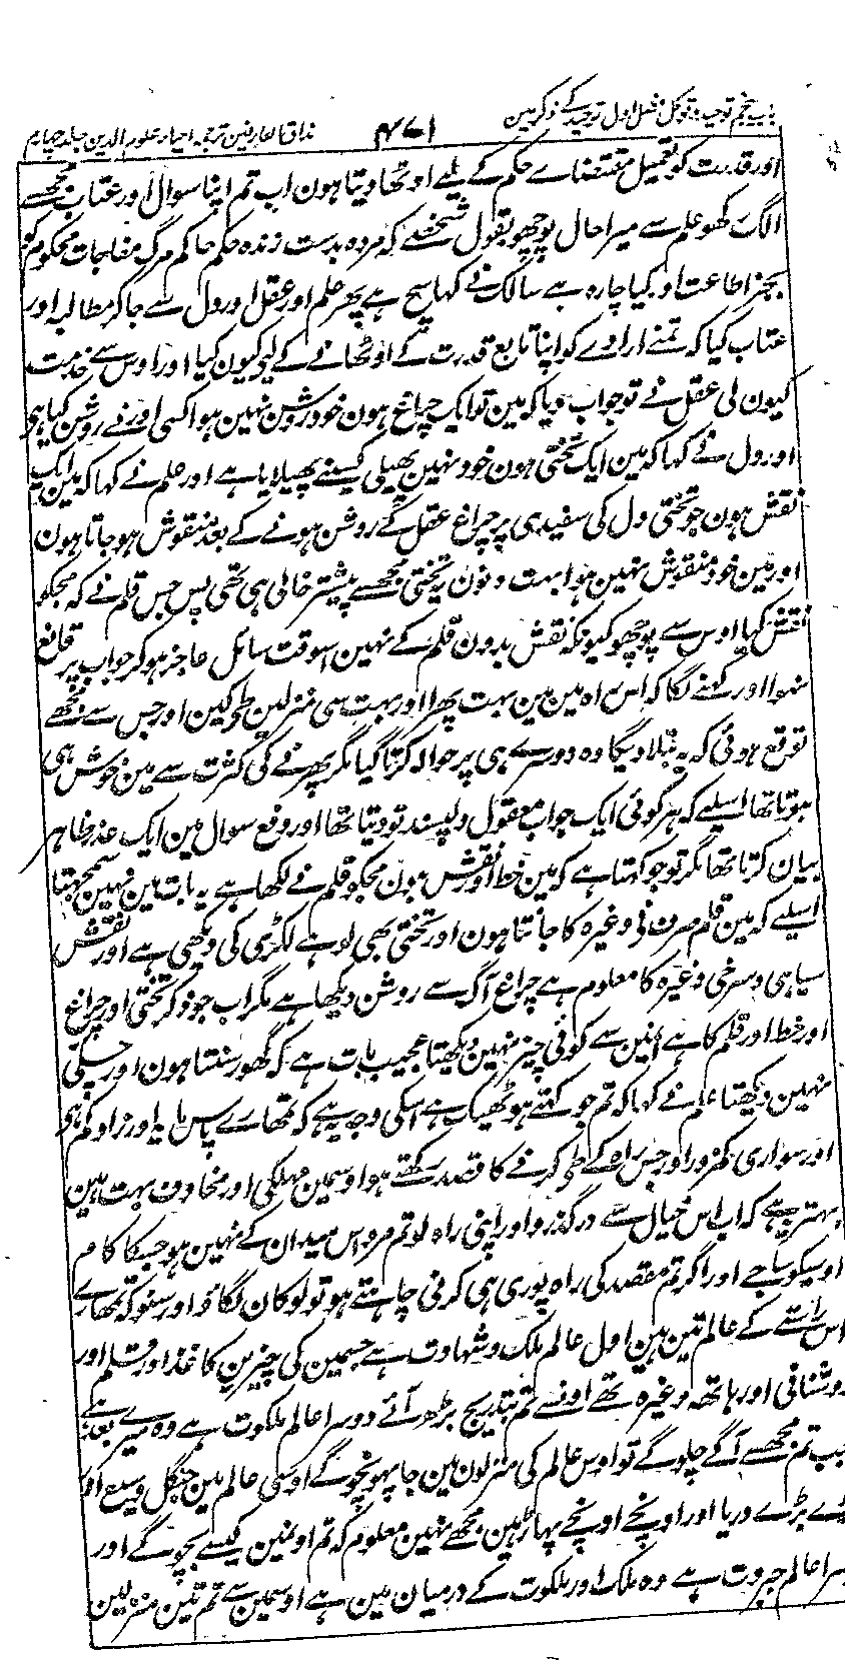 باب پنجم توحید و توکل فصل اول توحید کے ذکر مین ۴۷۱ مذاق العارفین ترجمہ احیاء علوم الدین جلد چہارم
اور قدرت کو تعمیل مقتضاے حکم کے لیے اوٹھا دیتا ہون اب تم اپنا سوال اور عتاب مجھسے
الگ رکھو علم سے میرا حال پوچھو بقول شخصے کہ مردہ بدست زندہ حکم حاکم مرگ مفاجات محکوم کو
بجز اطاعت اور کیا چارہ ہے سالک نے کہا سچ ہے پھر علم اور عقل اور دل سے جا کر مطالبہ اور
عتاب کیا کہ تمنے ارادے کو اپنا تابع قدرت کے اوٹھانے کے لیے کیون کیا اور اوس سے خدمت
کیون لی عقل نے تو جواب دیا کہ مین تو ایک چراغ ہون خود روشن نہین ہوا کسی اور نے روشن کیا ہی
اور دل نے کہا کہ مین ایک تختی ہون خود نہین پھیلی کسینے پھیلایا ہے اور علم نے کہا کہ مین ایک
نقش ہون جو تختی دل کی سفیدی پر چراغ عقل کے روشن ہونے کے بعد منقوش ہو جاتا ہون
اور مین خود منقوش نہین ہوا بہت دنون یہ تختی مجھسے پیشتر خالی ہی تھی پس جس قلم نے کہ مجکو
نقش کیا اوس سے پوچھو کیونکہ نقش بدون قلم کے نہین اسوقت سائل عاجز ہو کر جواب پر قانع
نہوا اور کہنے لگا کہ اس راہ مین مین بہت پھرا اور بہت سی منزلین طے کین اور جس سے مجھے
توقع ہوئی کہ یہ بتلا ویگا وہ دوسرے ہی پر حوالہ کرتا گیا مگر پھرنے کی کثرت سے مین خوش ہی
ہوتا تھا اسلیے کہ ہر کوئی ایک جواب معقول دلپسند تو دیتا تھا اور دفع سوال مین ایک عذر ظاہر
بیان کرتا تھا مگر تو جو کہتا ہے کہ مین خط اور نقش ہون مجکو قلم نے لکھا ہے یہ بات مین نہین سمجھتا
اسلیے کہ مین قلم صرف نی وغیرہ کا جانتا ہون اور تختی بھی لوہے لکڑی کی دیکھی ہے اور نقش
سیاہی و سرخی وغیرہ کا معلوم ہے چراغ آگ سے روشن دیکھا ہے مگر اب جو ذکر تختی اور چراغ
اور خط اور قلم کا ہے انین سے کوئی چیز نہین دیکھتا عجیب بات ہے کہ گھور سنتا ہون اور چکی
نہین دیکھتا علم نے کہا کہ تم جو کہتے ہو ٹھیک ہے اسکی وجہ یہ ہے کہ تمھارے پاس مایہ اور زاد کم ہی
اور سواری کمزور اور جس راہ کے طے کرنے کا قصد رکھتے ہو اوسمین مہلکے اور مخاوف بہت ہین
بہتر یہ ہے کہ اب اس خیال سے درگذرو اور اپنی راہ لو تم مرد اس میدان کے نہین ہو جسکا کام
اوسیکو ساجے اور اگر تم مقصد کی راہ پوری ہی کرنی چاہتے ہو تو لو کان لگاؤ اور سنو کہ تمھارے
اس رستے کے عالم تین ہین اول عالم ملک و شہادت ہے جسمین کی چیزین کاغذ اور قلم اور
روشنائی اور ہاتھ وغیرہ تھے اونسے تم بتدریج بڑھ آئے دوسرا عالم ملکوت ہے وہ میرے بعد ہے
جب تم مجھسے آگے چلو گے تو اوس عالم کی منزلون مین جا پہونچو گے اوسی عالم مین جنگل وسیع اور
بڑے بڑے دریا اور اونچے اونچے پہاڑ ہین مجھے نہین معلوم کہ تم اونین کیسے بچو گے اور
تیسرا عالم جبروت ہے وہ ملک اور ملکوت کے درمیان مین ہے اوسمین سے تم تین منزلین